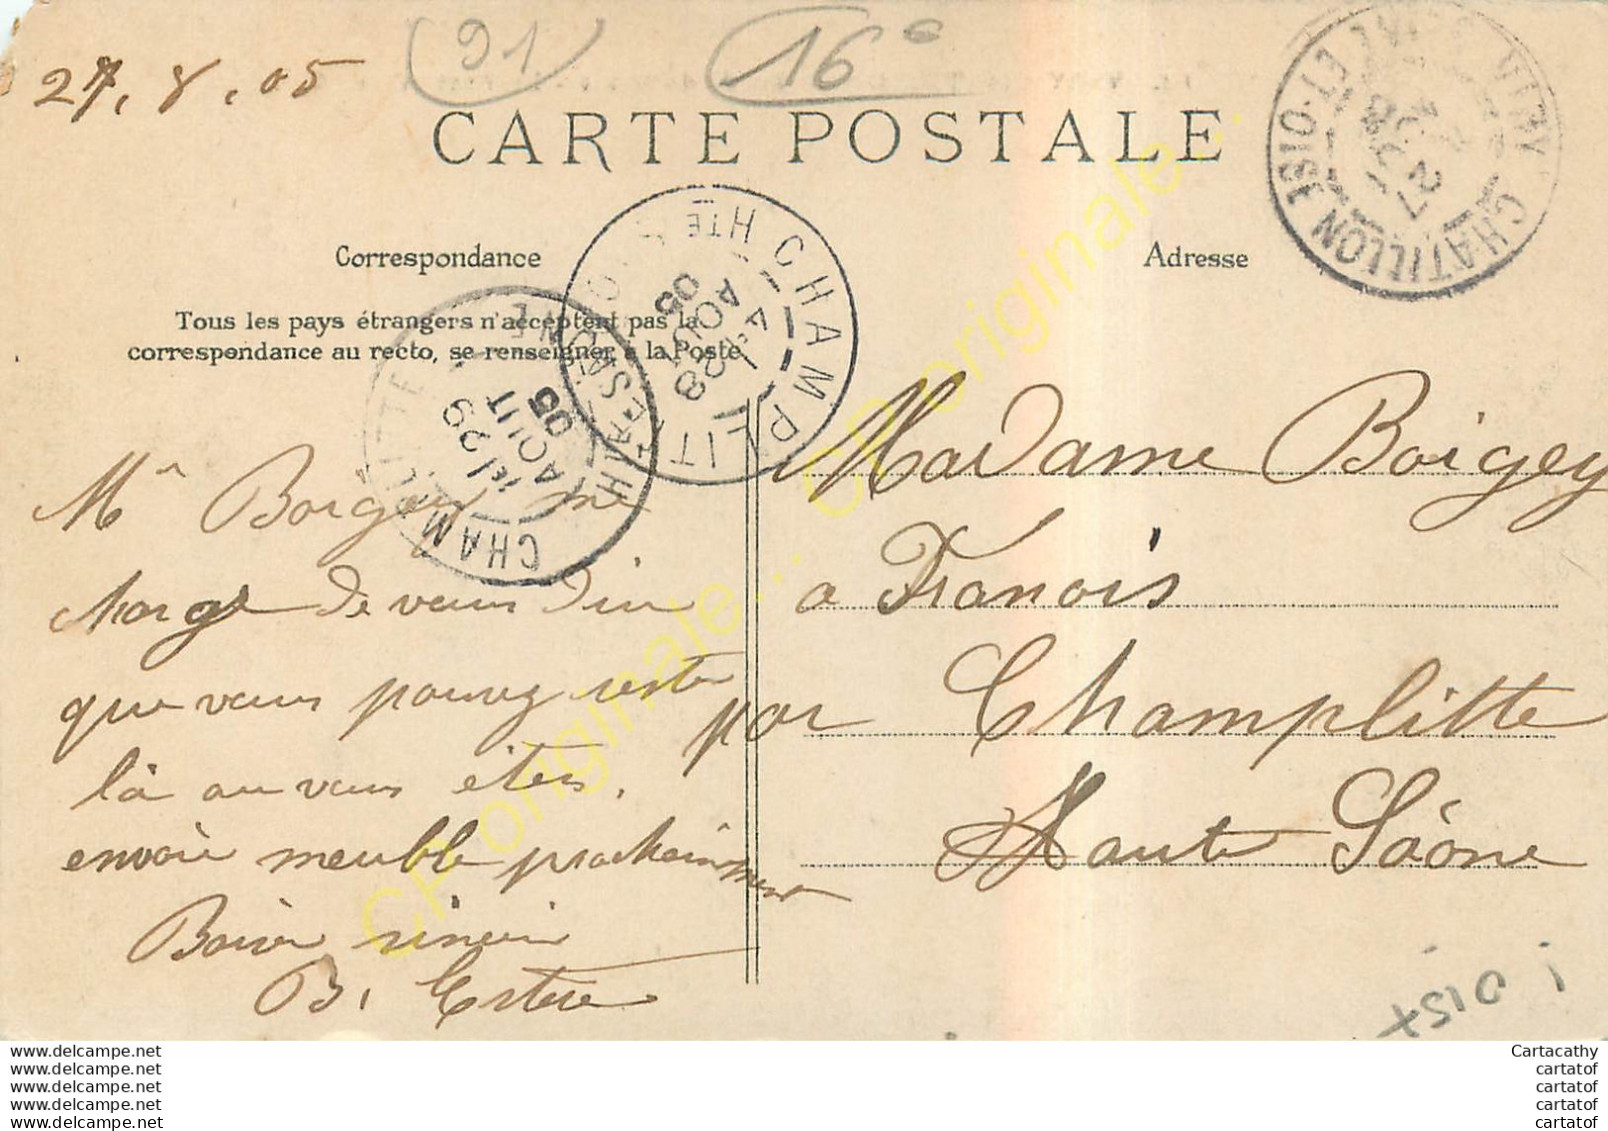 27. 8. 05
91
16e
CARTE POSTALE
Correspondance
Adresse
Tous les pays étrangers n'acceptent pas la
correspondance au recto, se renseigner à la Poste
VIRY CHATILLON SEINE-ET-OISE
27 AOUT 05
CHAMPLITTE HTE SAONE
28 AOUT 05
CHAMPLITTE HTE SAONE
1e 29 AOUT 05
Mr Boigey me
charge de vous dire
que vous pouvez rester
là ou vous êtes.
envoie meuble prochainement
B. Estere
Madame Boigey
a Franois
par Champlitte
Haute Saône
CP originale...
CP originale...
www.delcampe.net
www.delcampe.net
www.delcampe.net
www.delcampe.net
www.delcampe.net
Cartacathy
cartatof
cartatof
cartatof
cartatof